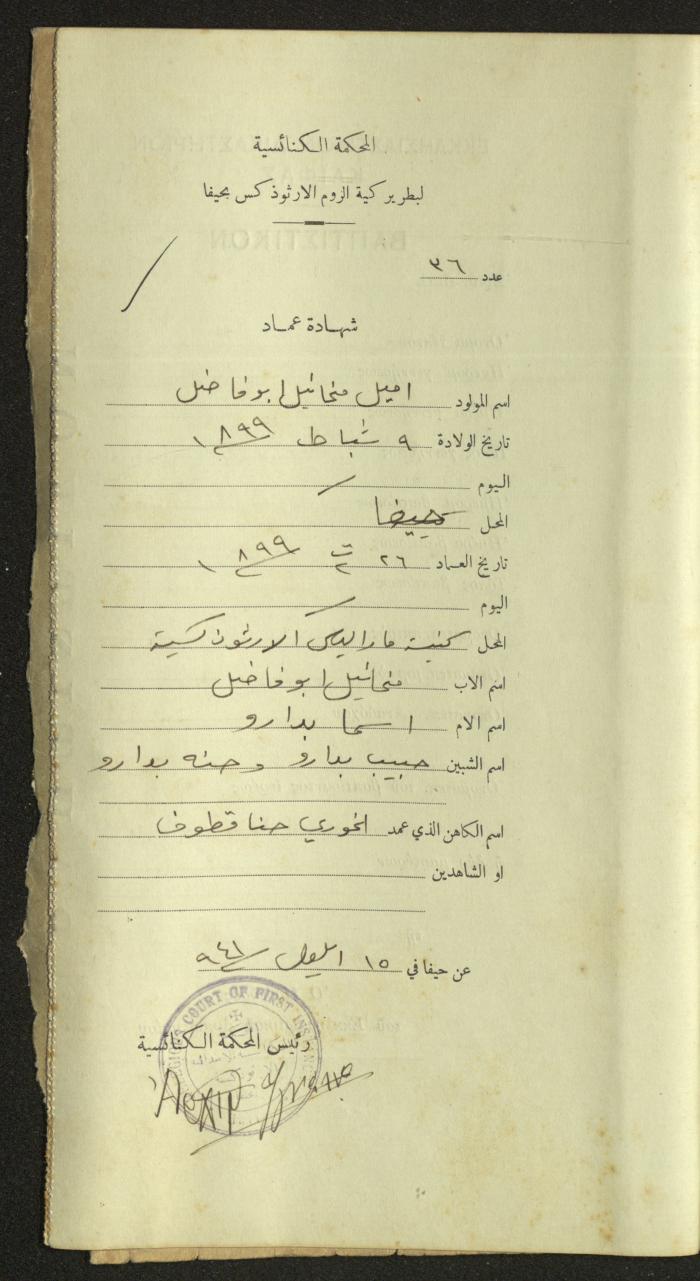 المحكمة الكنائسية
لبطريركية الروم الارثوذكس بحيفا
عدد ٣٦
شهادة عماد
اسم المولود اميل مخائيل ابو فاضل
تاريخ الولادة ٩ شباط ١٨٩٩
اليوم
المحل حيفا
تاريخ العماد ٢٦ ت٢ ١٨٩٩
اليوم
المحل كنيسة مار الياس الارثوذكسية
اسم الاب مخائيل ابو فاضل
اسم الام اسما بدارو
اسم الشبين حبيب بدارو وحنه بدارو
اسم الكاهن الذي عمد الخوري حنا قطوف
او الشاهدين
عن حيفا في ١٥ ايلول ٩٤١
COURT OF FIRST
رئيس المحكمة الكنائسية